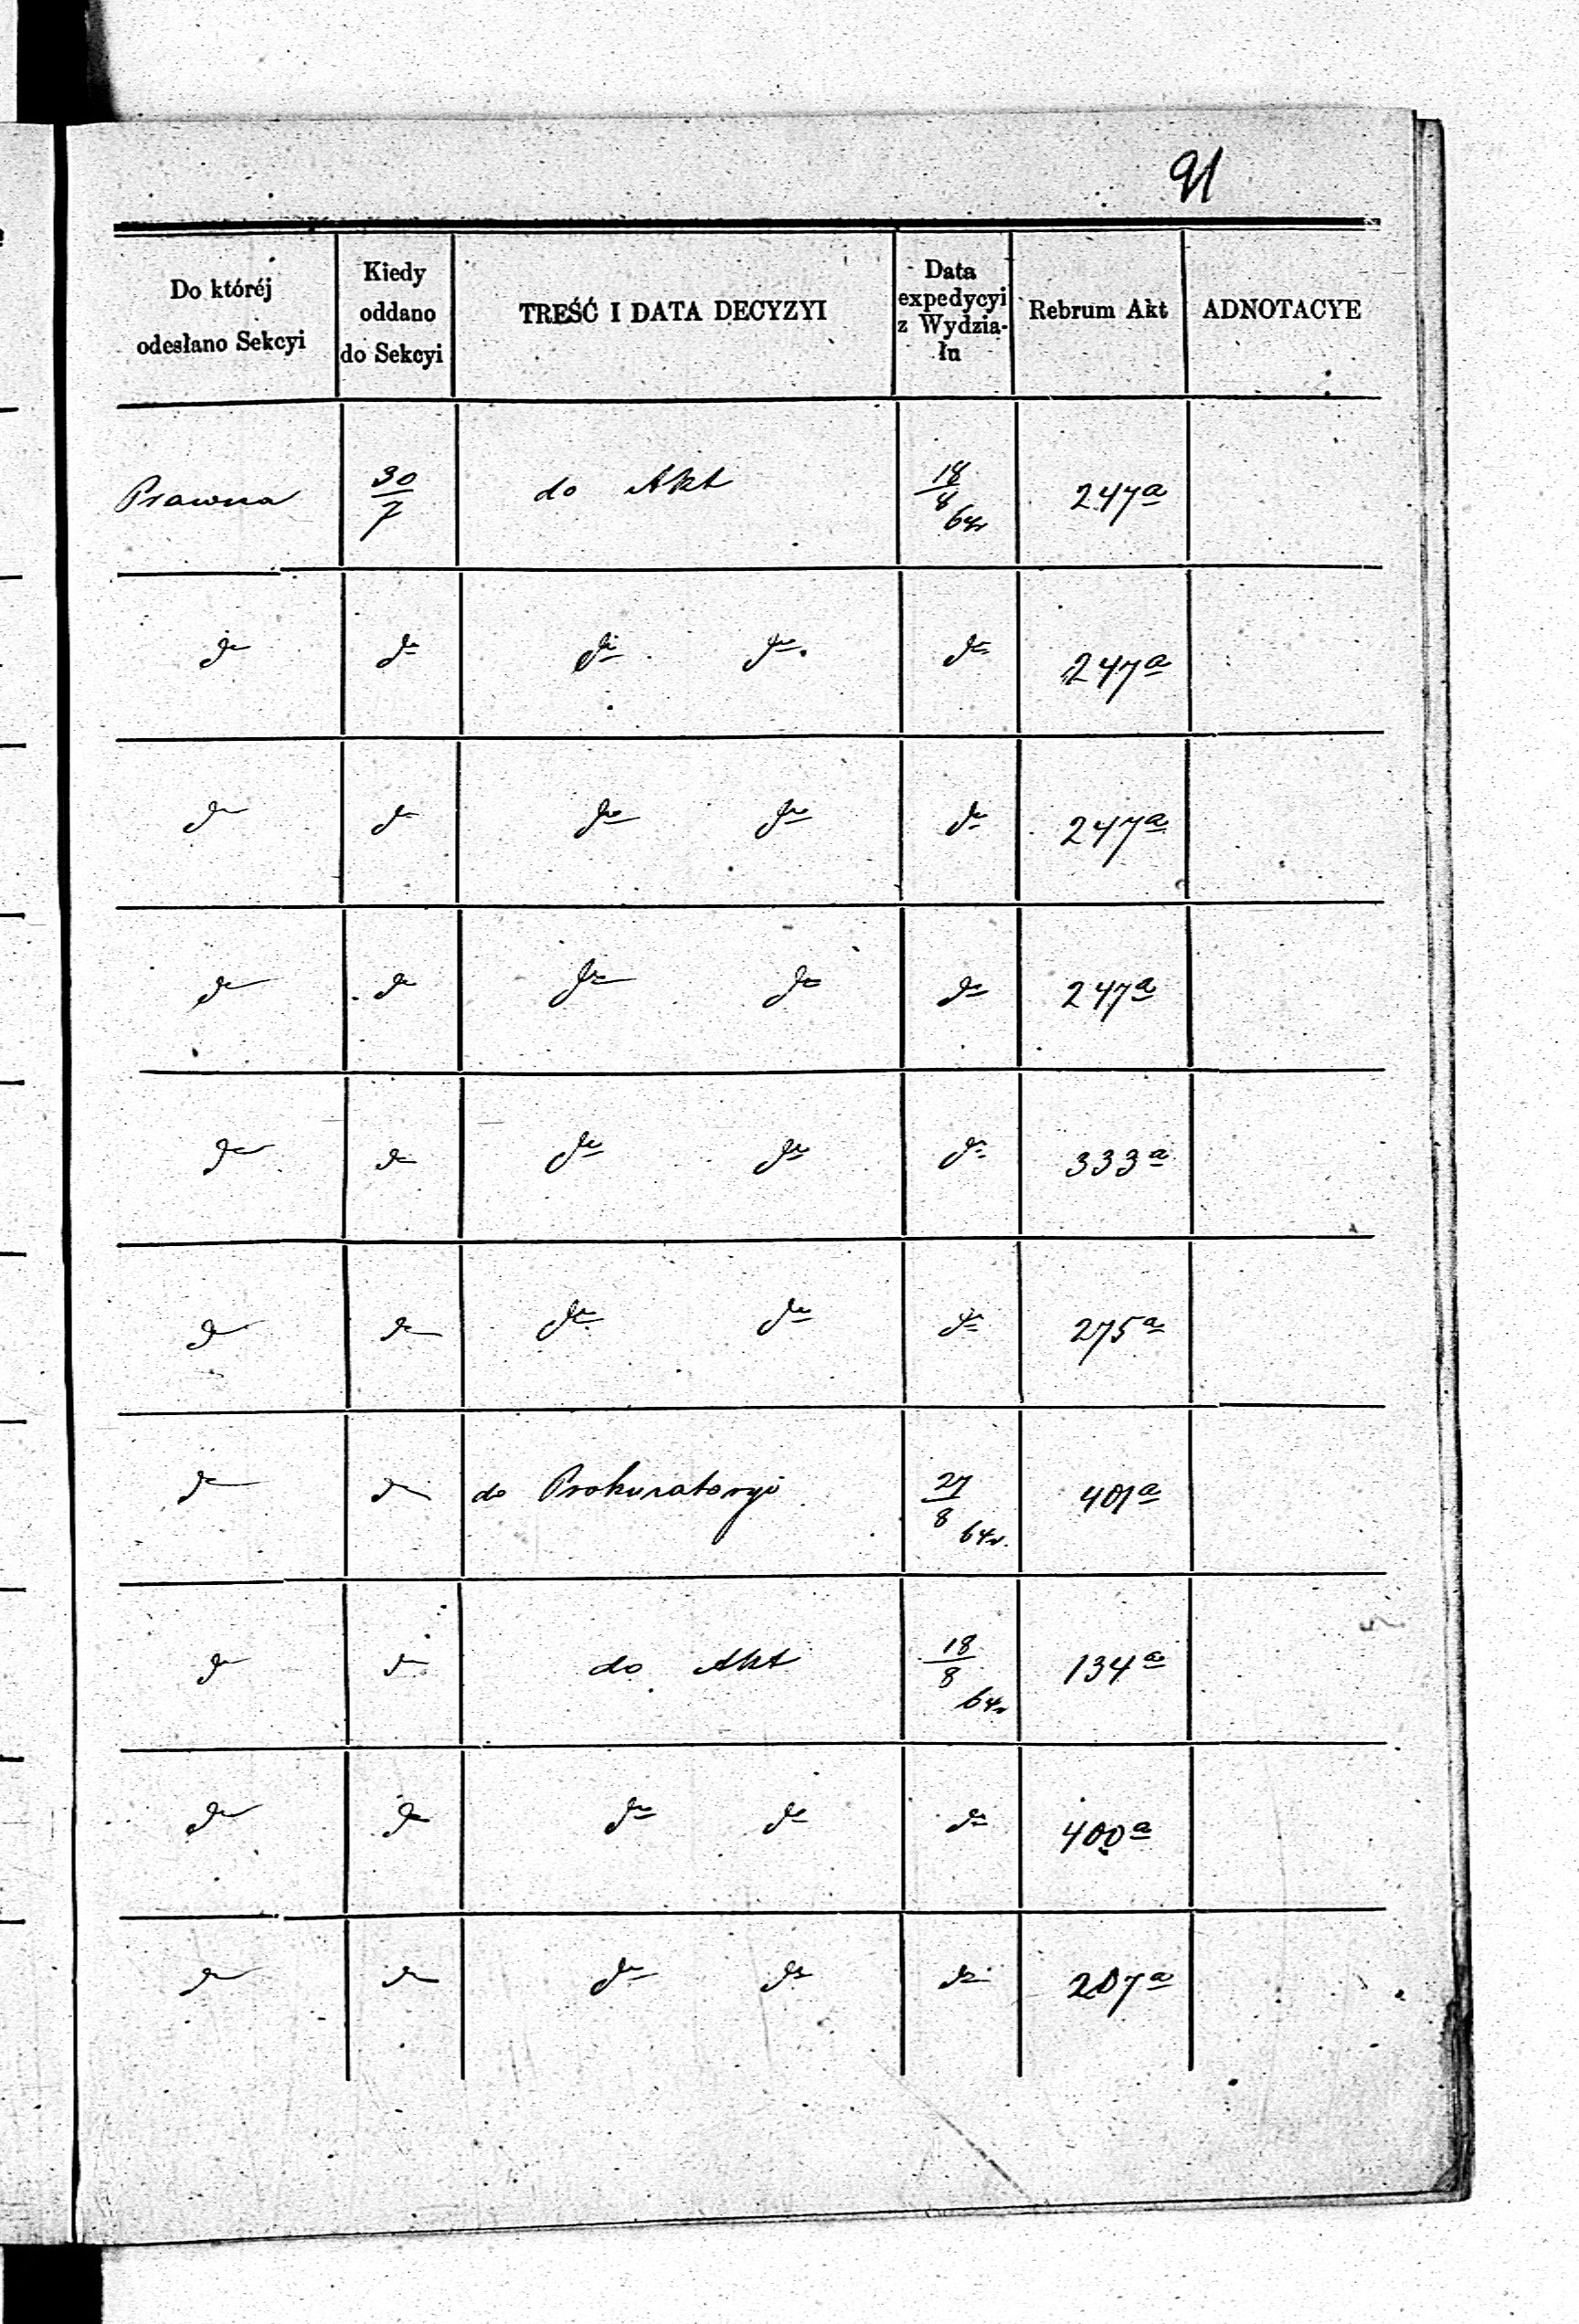 91
Do któréj odesłano Sekcyi | Kiedy oddano do Sekcyi | TREŚĆ I DATA DECYZYI | Data expedycyi z Wydzia-łu | Rebrum Akt | ADNOTACYE
Prawna | 30/7 | do Akt | 18/8 64r | 247a
do | do | do do | do | 247a
do | do | do do | do | 247a
do | do | do do | do | 247a
do | do | do do | do | 333a
do | do | do do | do | 275a
do | do | do Prokuratoryi | 27/8 64r. | 401a
do | do | do Akt | 18/8 64r | 134a
do | do | do do | do | 400a
do | do | do do | do | 207a